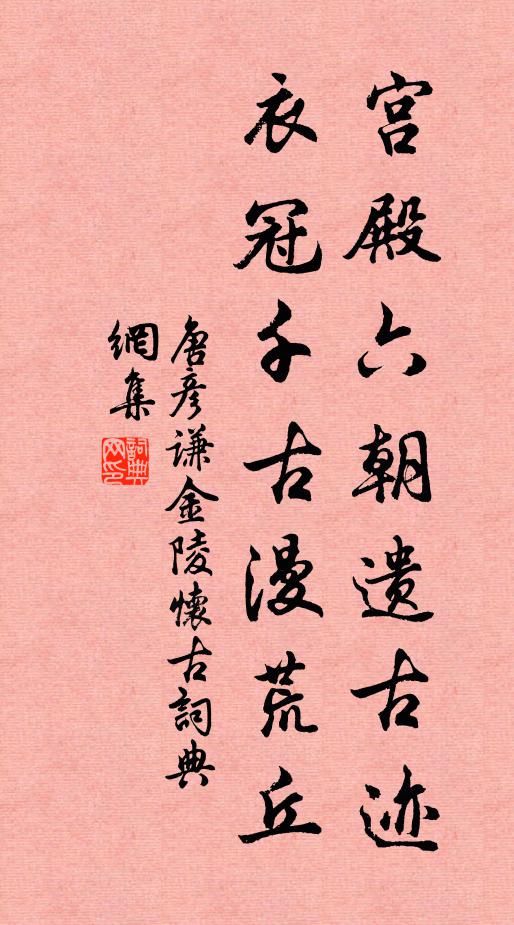 宫殿六朝遗古迹
衣冠千古漫荒丘
唐彦谦金陵懷古詞典
網集
詞典網印